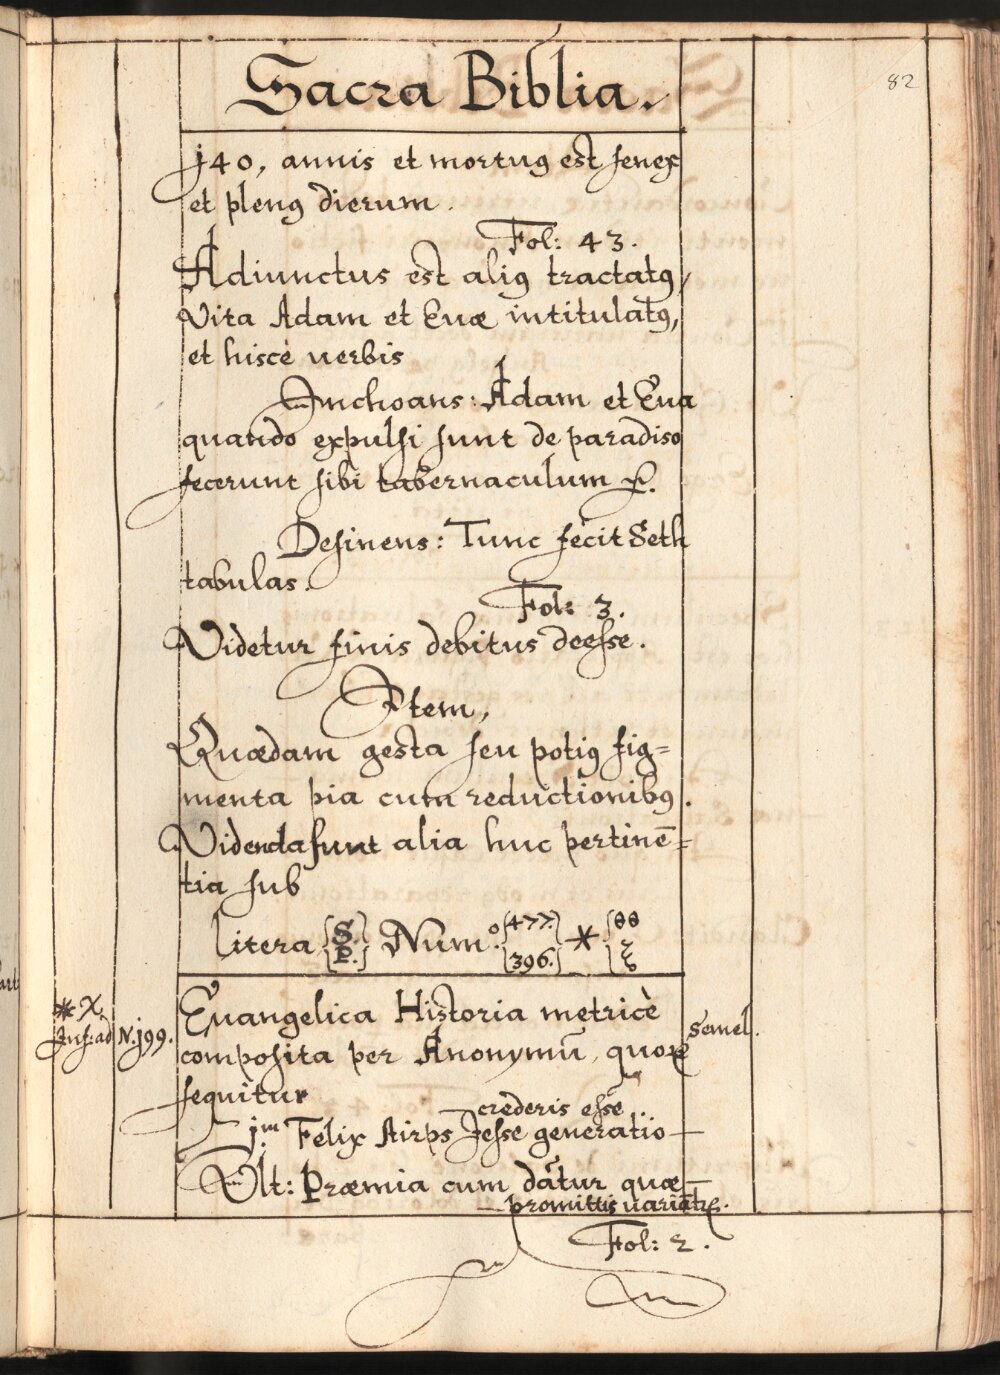 82
Sacra Biblia.
140, annis et mortuꝰ est senex
et plenꝰ dierum.
Fol: 43.
Adiunctus est aliꝰ tractatꝰ,
Vita Adam et Euæ intitulatꝰ,
et hiscè uerbis
Inchoans: Adam et Eua
quando expulsi sunt de paradiso
fecerunt sibi tabernaculum
Desinens: Tunc fecit Seth
tabulas.
Fol: 3.
Videtur finis debitus deesse.
Item,
Quædam gesta seu potiꝰ fig=
menta pia cum reductionibꝰ.
Videnda sunt alia huc pertinē=
tia sub
litera {S. P.} Num.o {477. 396.} * {88 ξ
* X.
Inf: ad N.199. Euangelica Historia metricè Semel.
composita per Anonymū, quoꝝ
sequitur
crederis esse
jm Felix stirps Jesse generatio —
Ult: Præmia cum dātur quæ —
— promittis
Fol: 2.